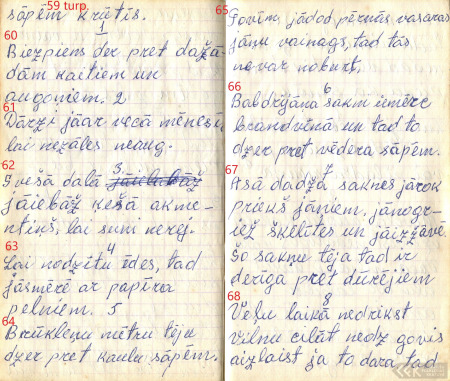 59 turp.
sāpēm krūtīs.
1
60
Biezpiens der pret dažā-
dām kaitiem un
augoņiem. 2
61
Dārzi jāar vecā mēnesī
lai nezāles neaug.
62
3.
Svešā daļā jāiebāž
jāiebāž kešā akme-
ntiņš, lai suni nerej.
63
4
Lai nodzītu ēdes, tad
jāsmērē ar papīra
pelniem. 5
64
Brūkleņu mētru tēju
dzer pret kaulu sāpēm.
65
Govīm jādod pērnās vasaras
jāņu vainags, tad tās
nevar noburt.
66
6
Baldrijāna sakni iemērc
brandvīnā un tad to
dzer pret vēdera sāpēm.
67
7
Asā dadžā saknes jārok
priekš jāņiem, jānogr-
iež šķēlītes un jāizžāvē.
Šo sakņu tēja tad ir
derīga pret dūrējiem
68
8
Veļu laikā nedrīkst
vilnu cilāt nedz govis
aizlaist ja to dara tad